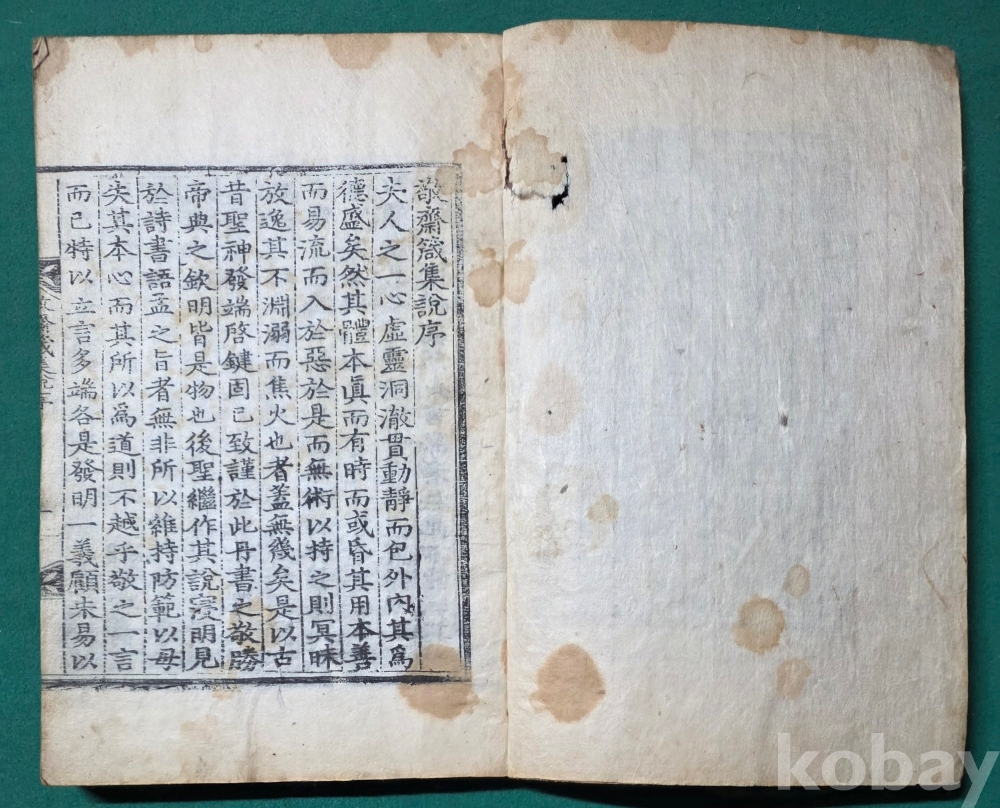 敬齋箴集說序
夫人之一心虛靈洞澈貫動靜而包外內其爲
德盛矣然其體本眞而有時而或昏其用本善
而易流而入於惡於是而無術以持之則冥昧
放逸其不淵溺而焦火也者蓋無幾矣是以古
昔聖神發端啓鍵固已致謹於此丹書之敬勝
帝典之欽明皆是物也後聖繼作其說寖明見
於詩書語孟之旨者無非所以維持防範以毋
失其本心而其所以爲道則不越乎敬之一言
而已特以立言多端各是發明一義顧未易以
kobay